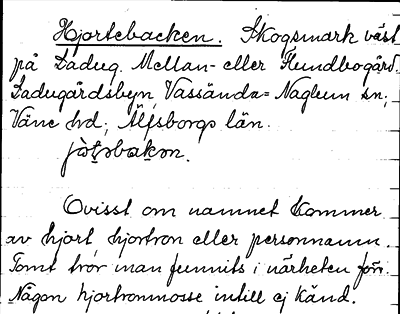 Hjortebacken. Skogsmark väst
på Ladug. Mellan- eller Hundbogård.
Ladugårdsbyn, Vassända=Naglum sn;
Väne hd; Älfsborgs län.

Ovisst om namnet kommer
av hjort hjortron eller personnamn.
Tomt tror man funnits i närheten förr.
Någon hjortronmosse intill ej känd.